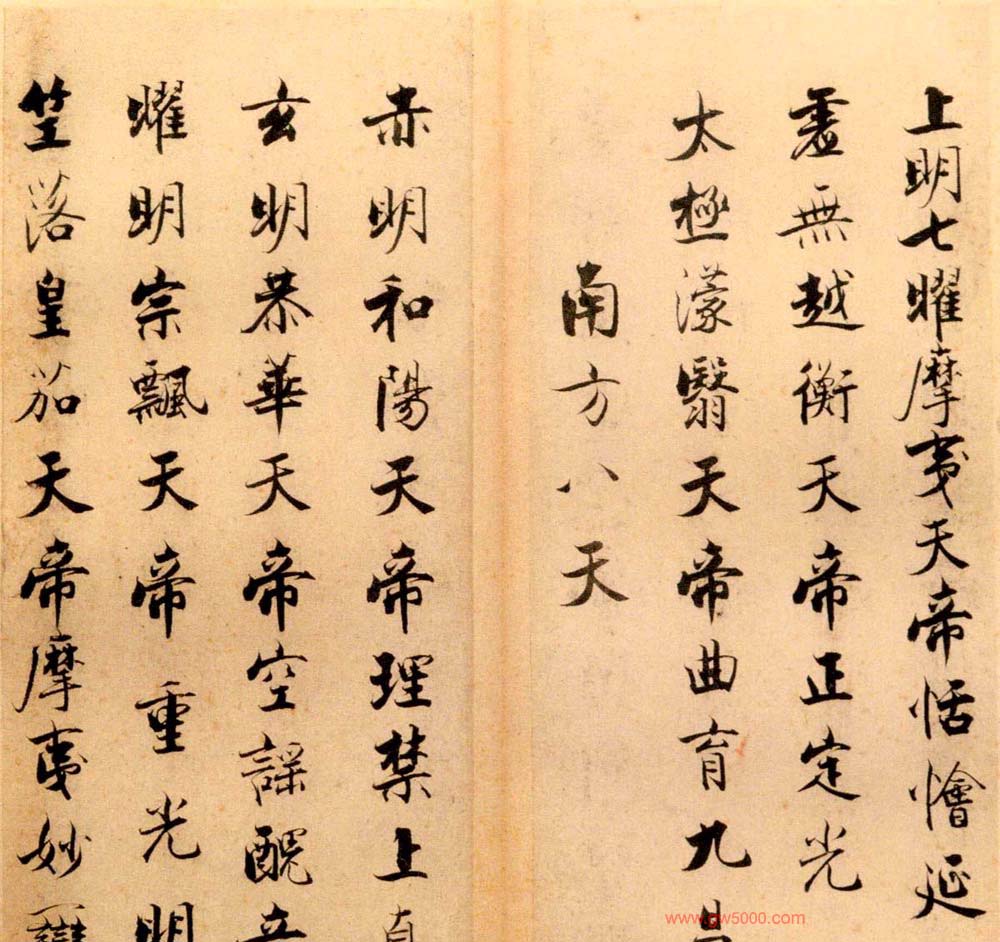 上明七曜摩夷天帝恬懀延
虛無越衡天帝正定光
太極濛翳天帝曲育九
南方八天
赤明和陽天帝理禁上
玄明恭華天帝空謠醜
耀明宗飄天帝重光明
竺落皇茄天帝摩夷妙
www.gw5000.com